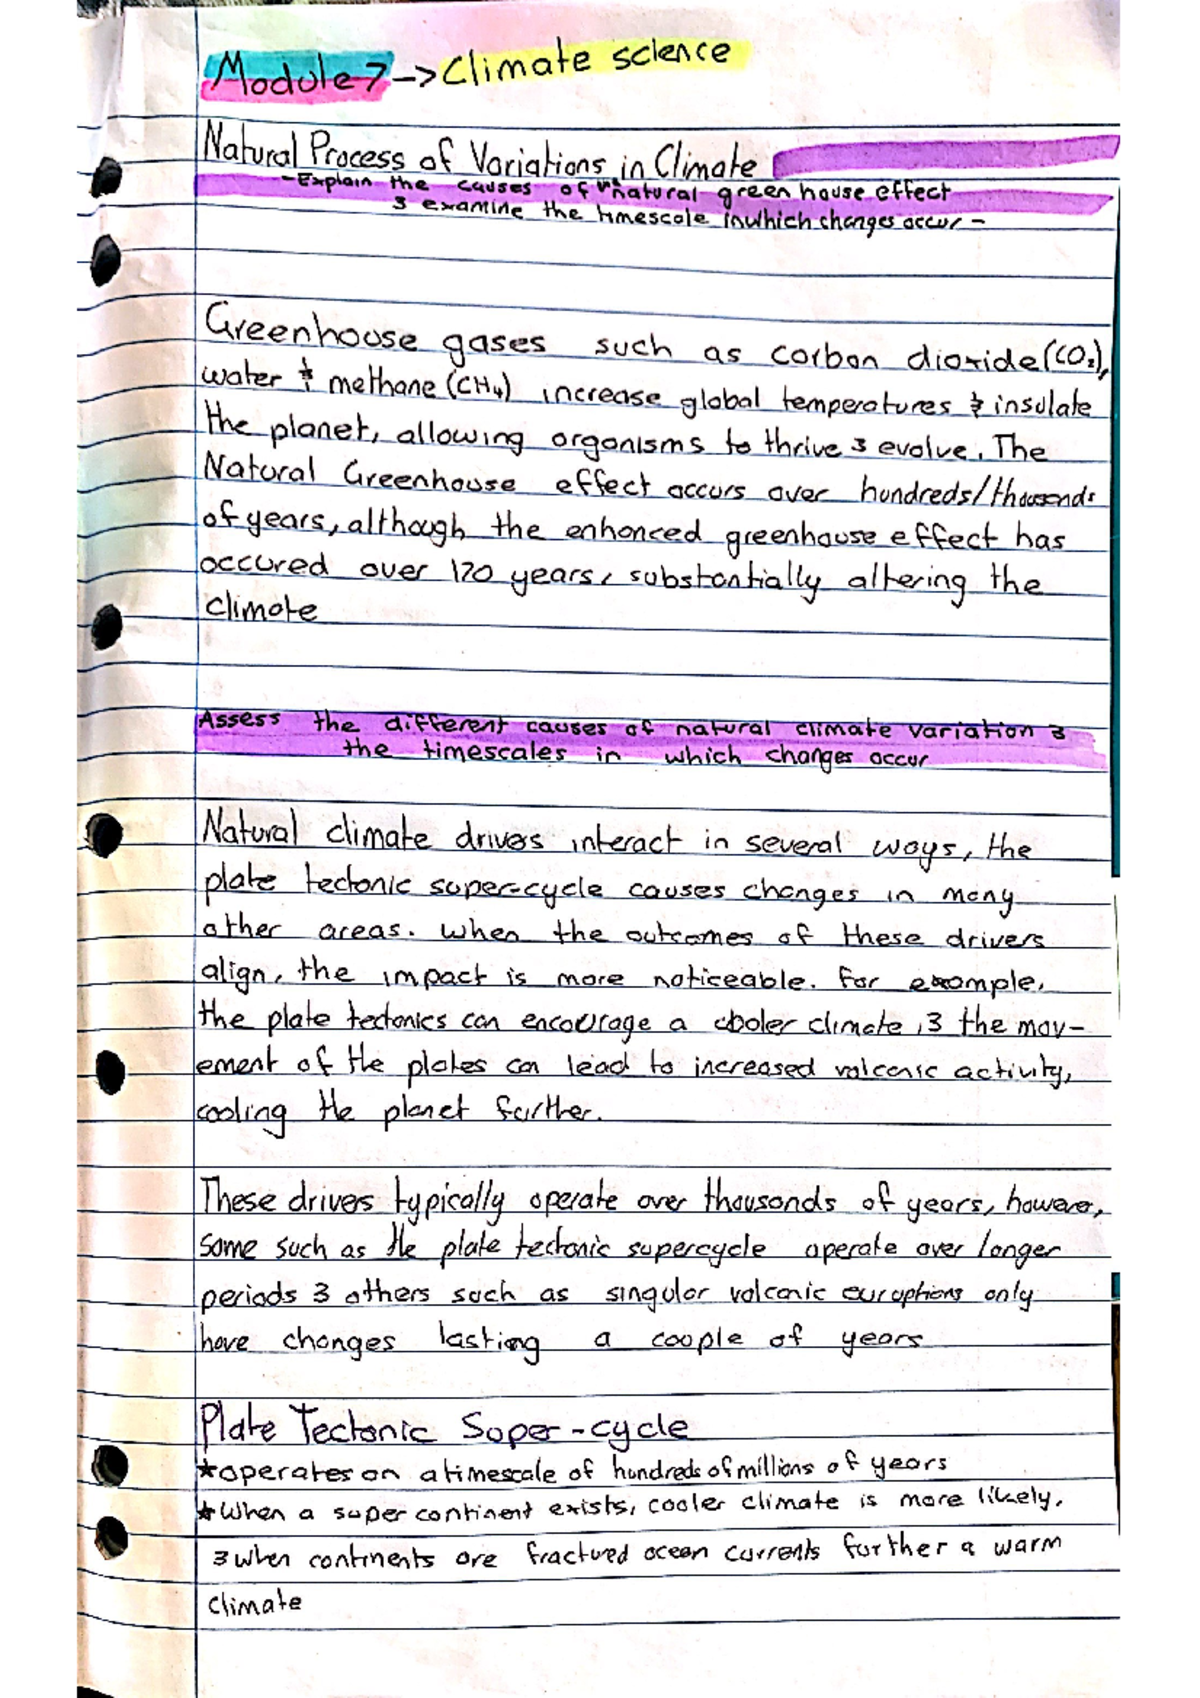 Module 7 -> Climate science
Natural Process of Variations in Climate
- Explain the causes of "natural green house effect
& examine the timescale inwhich changes occur -
Greenhouse gases such as carbon dioxide (CO₂),
water & methane (CH₄) increase global temperatures & insulate
the planet, allowing organisms to thrive & evolve. The
Natural Greenhouse effect occurs over hundreds/thousands
of years, although the enhanced greenhouse effect has
occured over 170 years, substantially altering the
climate
Assess the different causes of natural climate variation &
the timescales in which changes occur
Natural climate drives interact in several ways, the
plate tectonic super-cycle causes changes in many
other areas. When the outcomes of these drivers
align, the impact is more noticeable. For example,
the plate tectonics can encourage a cooler climate, & the mov-
ement of the plates can lead to increased volcanic activity,
cooling the planet further.
These drivers typically operate over thousands of years, however,
some such as the plate tectonic supercycle operate over longer
periods & others such as singular volcanic euruptions only
have changes lasting a couple of years
Plate Tectonic Super-cycle
*operates on a timescale of hundreds of millions of years
*When a super continent exists, cooler climate is more likely,
& when continents are fractured ocean currents further a warm
climate